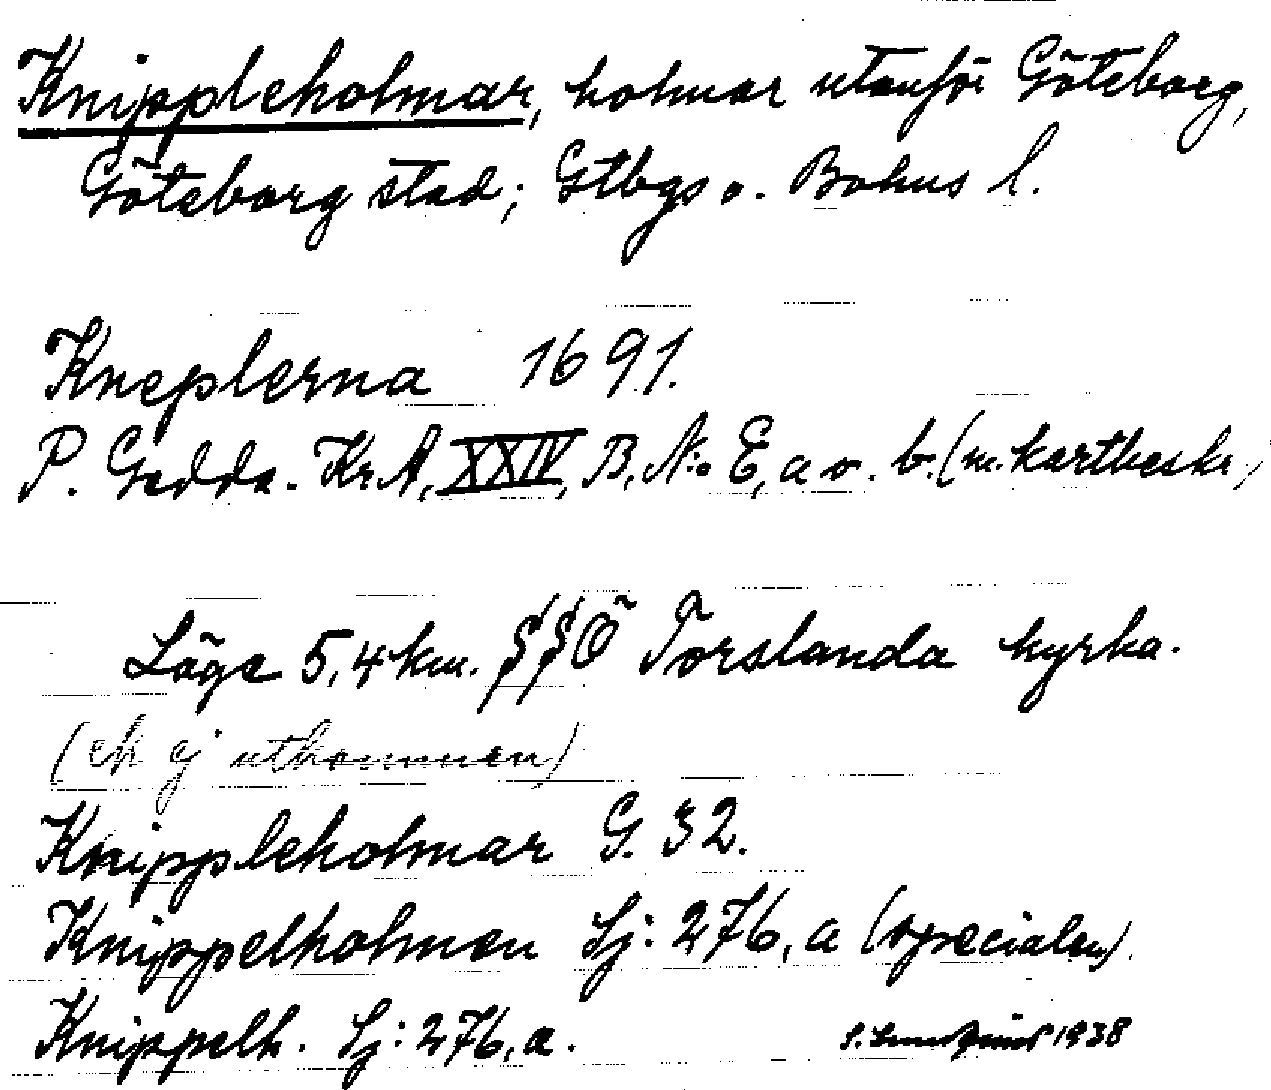 Knippleholmar, holmar utanför Göteborg,
Göteborg stad; Gtbgs o. Bohus l.
Kneplerna 1691.
P. Gedda. Kr.A, XXIV, B, N:o E, a o. b. (m. kartbeskr.)
Läge 5,4 km. SSÖ Torslanda kyrka.
(ek ej utkommen)
Knippleholmar G. 32.
Knippelholmen Sj: 276, a (specialen).
Knippelh. Sj: 276, a.
1938